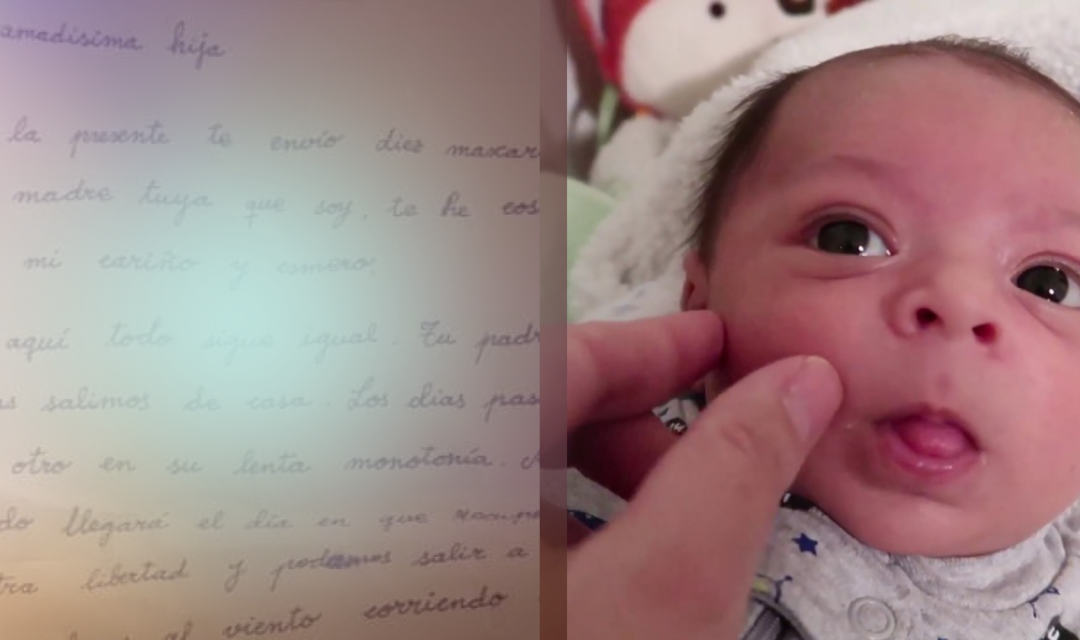 amadísima hija
la presente te envío diez mascar
madre tuya que soy, te he cos
mi cariño y esmero.
aquí todo sigue igual. Tu padr
as salimos de casa. Los días pas
otro en su lenta monotonía.
do llegará el día en que recupe
tra libertad y podamos salir a
al viento corriendo